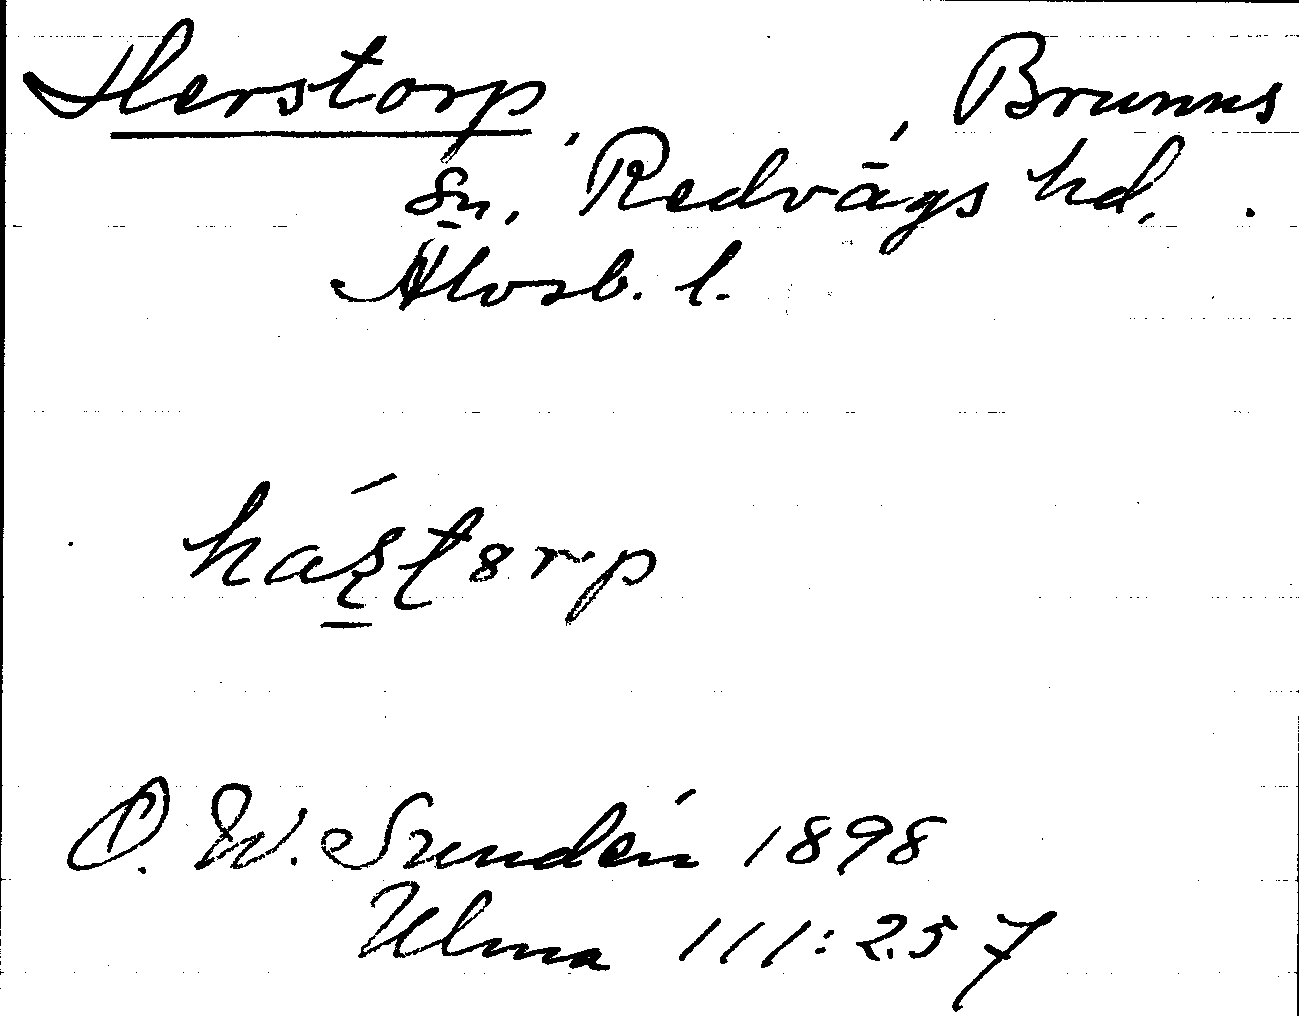 Herstorp, , Brunns
sn, Redvägs hd,
Älvsb. l.
O. W. Sundén 1898
Ulma 111:257